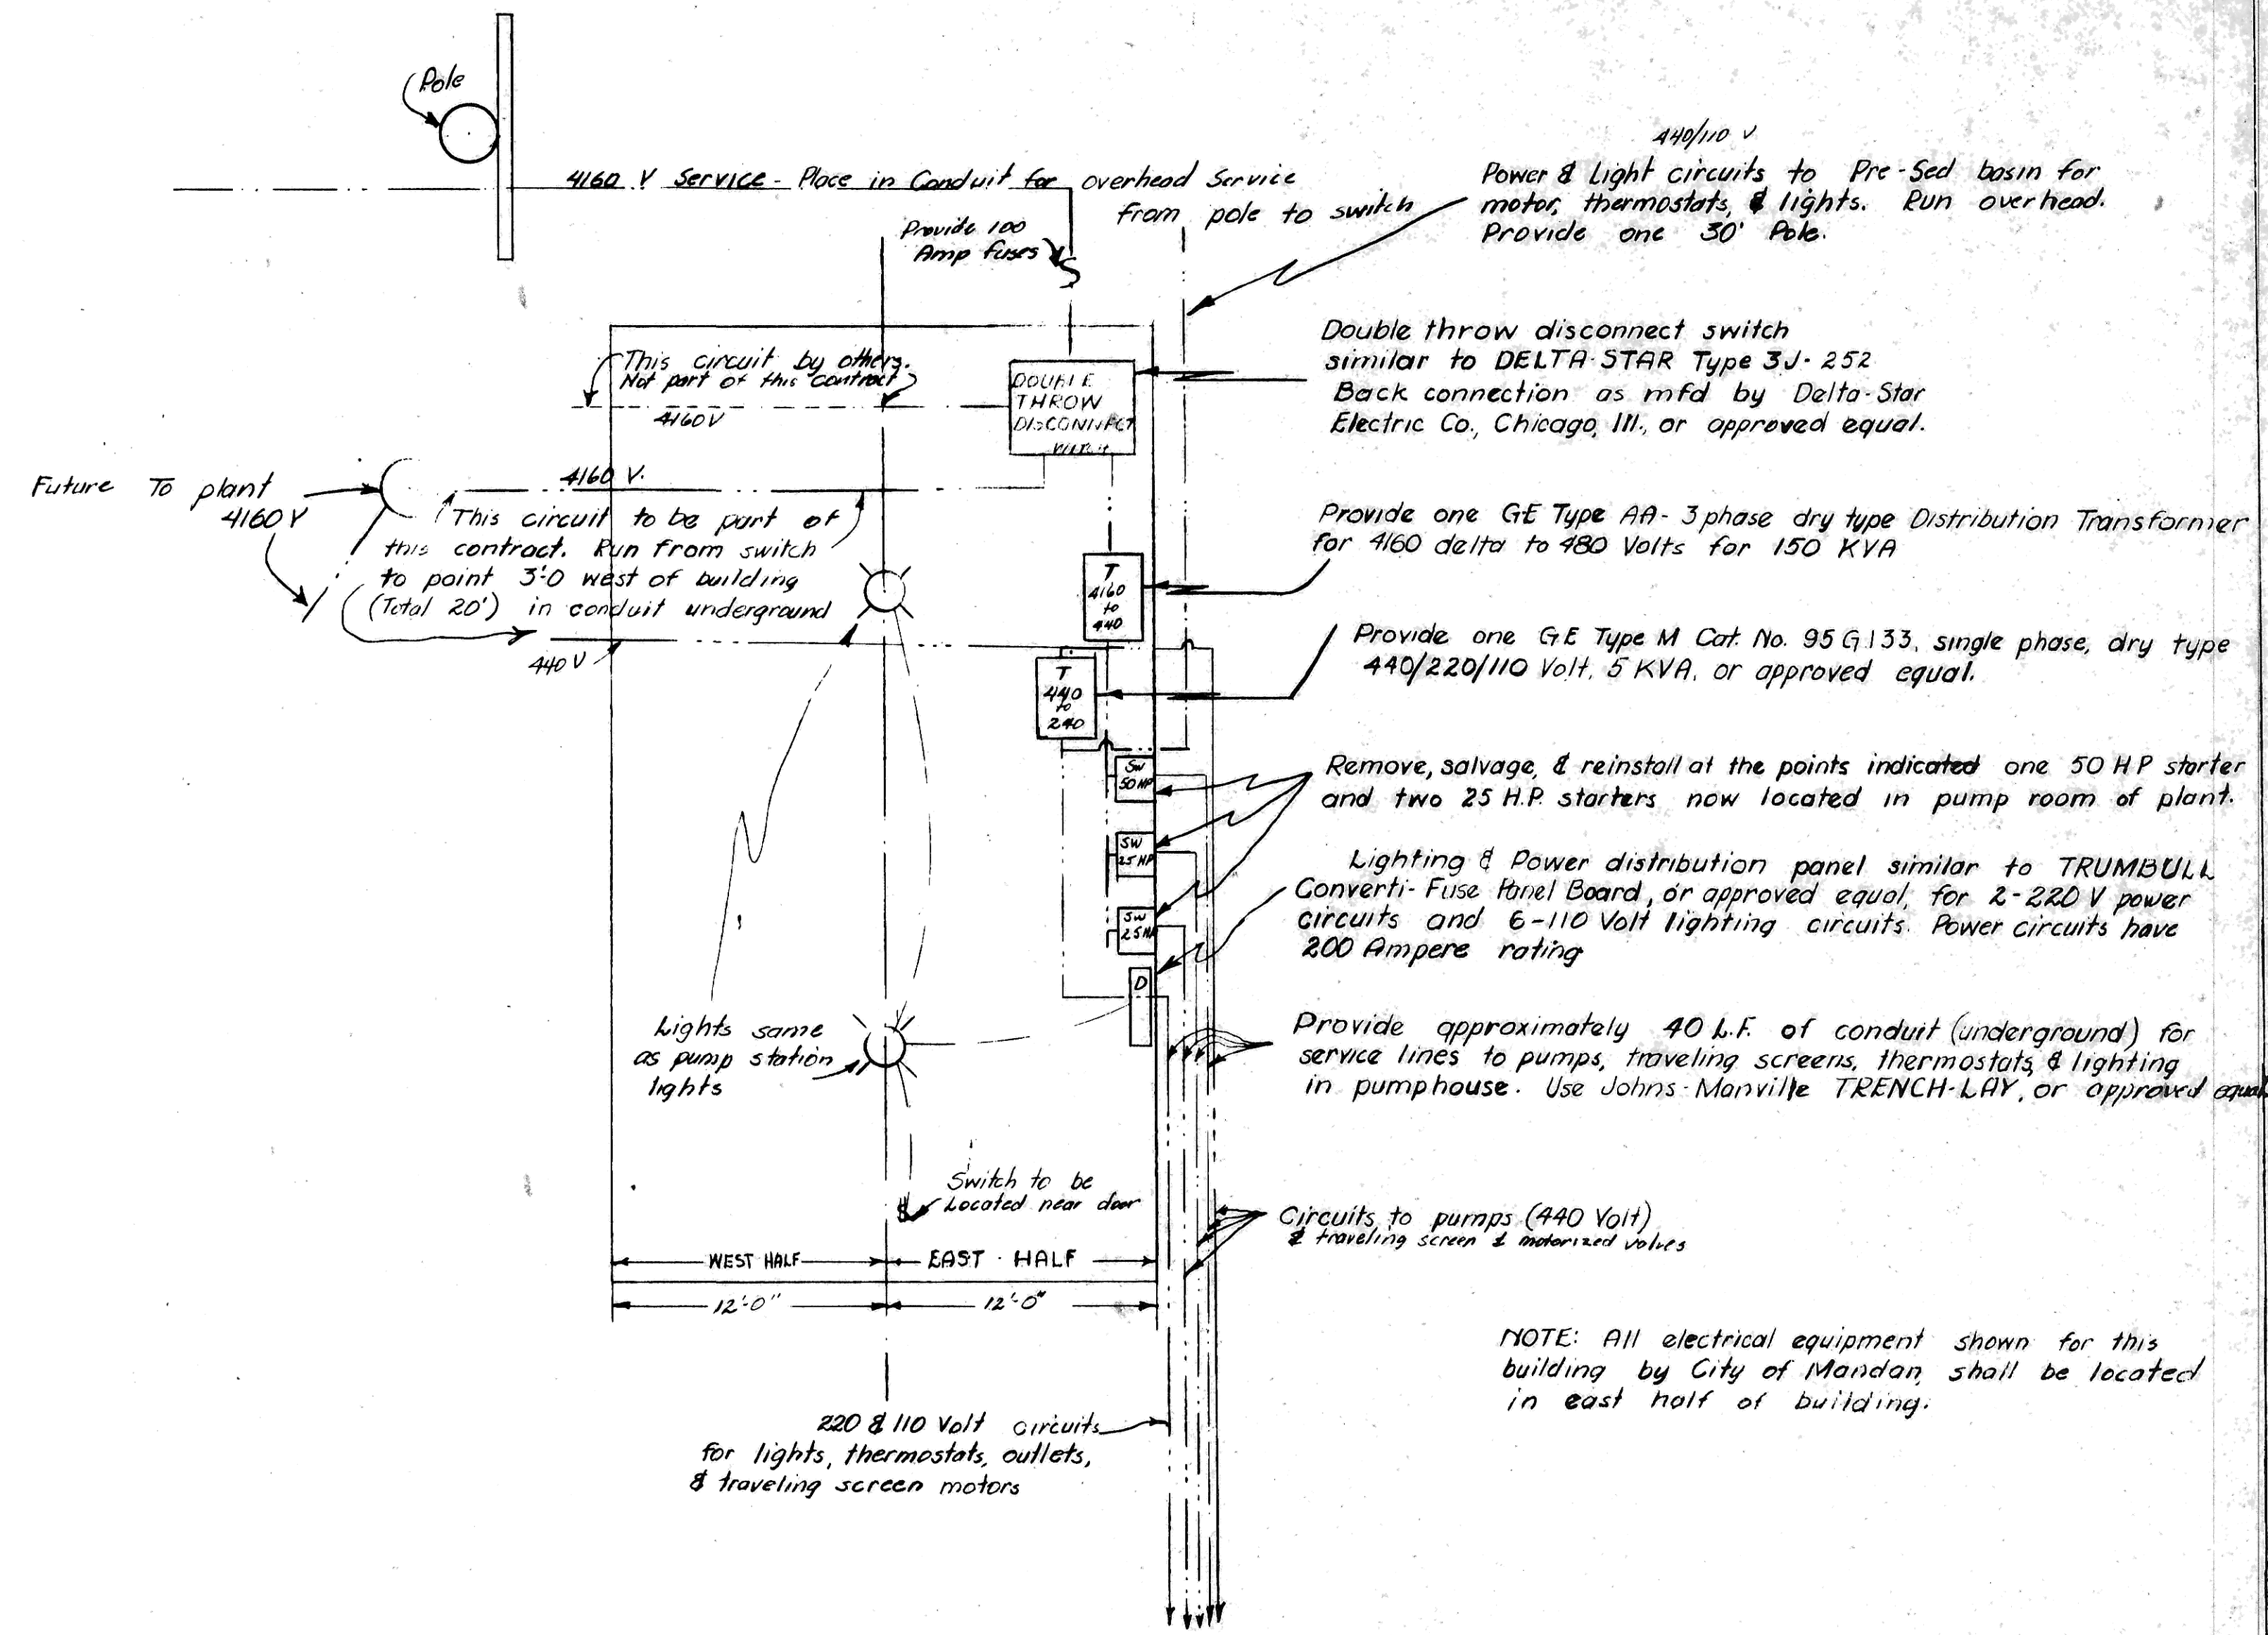 Pole
440/110 V
4160 V Service - Place in Conduit for overhead Service
from pole to switch
Power & Light circuits to Pre-Sed basin for
motor, thermostats, & lights. Run overhead.
Provide one 30' Pole.
Provide 100
Amp fuses
This circuit by others.
Not part of this contract
4160 V
DOUBLE
THROW
DISCONNECT
Double throw disconnect switch
similar to DELTA-STAR Type 3J-252
Back connection as mfd by Delta-Star
Electric Co., Chicago, Ill., or approved equal.
Future To plant
4160 V
4160 V.
This circuit to be part of
this contract. Run from switch
to point 3'-0 west of building
(Total 20') in conduit underground
440 V
T
4160
to
440
Provide one GE Type AA - 3 phase dry type Distribution Transformer
for 4160 delta to 480 Volts for 150 KVA
T
440
to
240
Provide one GE Type M Cat. No. 95G133, single phase, dry type
440/220/110 Volt, 5 KVA, or approved equal.
SW
50 HP
SW
25 HP
SW
25 HP
Remove, salvage, & reinstall at the points indicated one 50 HP starter
and two 25 H.P. starters now located in pump room of plant.
Lighting & Power distribution panel similar to TRUMBULL
Converti-Fuse Panel Board, or approved equal, for 2-220 V power
circuits and 6-110 Volt lighting circuits. Power circuits have
200 Ampere rating
D
Lights same
as pump station
lights
Provide approximately 40 L.F. of conduit (underground) for
service lines to pumps, traveling screens, thermostats, & lighting
in pumphouse. Use Johns-Manville TRENCH-LAY, or approved equal
Switch to be
Located near door
Circuits to pumps (440 Volt)
& traveling screen & motorized valves
WEST HALF
EAST HALF
12'-0"
12'-0"
NOTE: All electrical equipment shown for this
building by City of Mandan, shall be located
in east half of building.
220 & 110 Volt circuits
for lights, thermostats, outlets,
& traveling screen motors